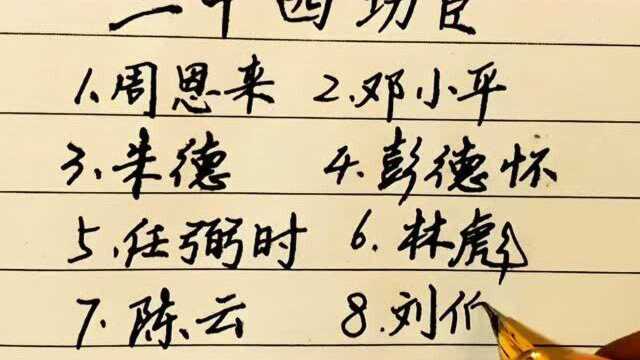 二十四功臣
1.周恩来 2.邓小平
3.朱德 4.彭德怀
5.任弼时 6.林彪
7.陈云 8.刘伯